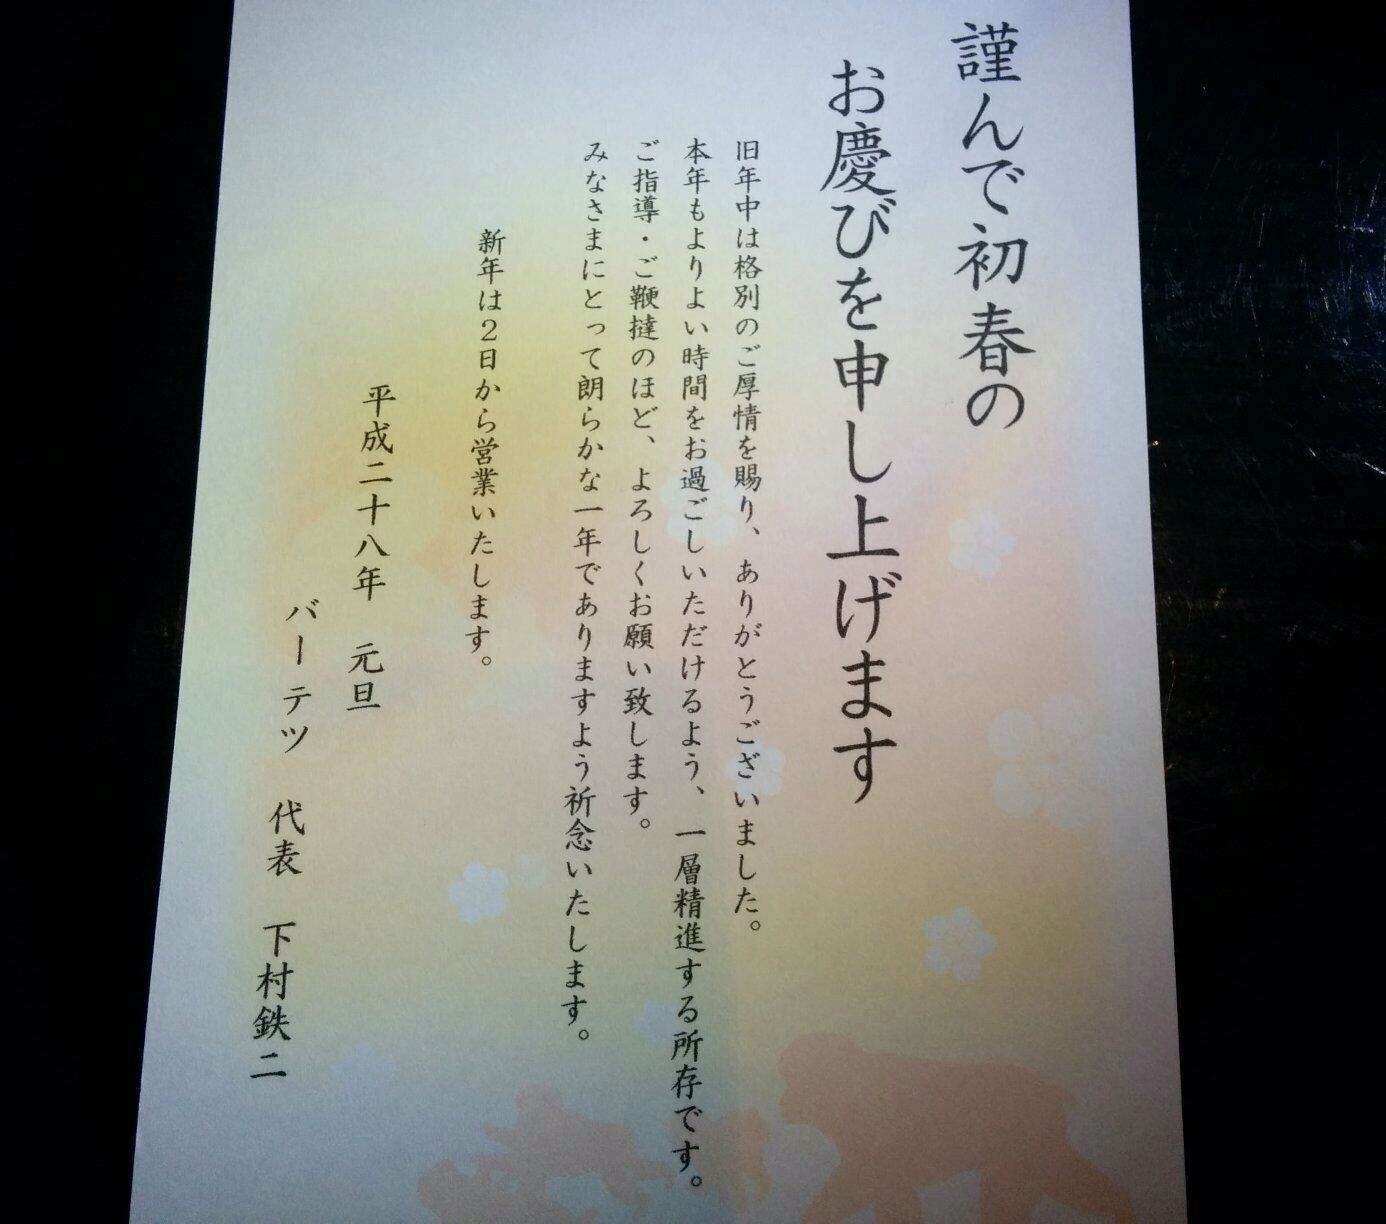 謹んで初春の
お慶びを申し上げます
旧年中は格別のご厚情を賜り、ありがとうございました。
本年もよりよい時間をお過ごしいただけるよう、一層精進する所存です。
ご指導・ご鞭撻のほど、よろしくお願い致します。
みなさまにとって朗らかな一年でありますよう祈念いたします。
新年は2日から営業いたします。
平成二十八年　元旦
バーテツ　代表　下村鉄二